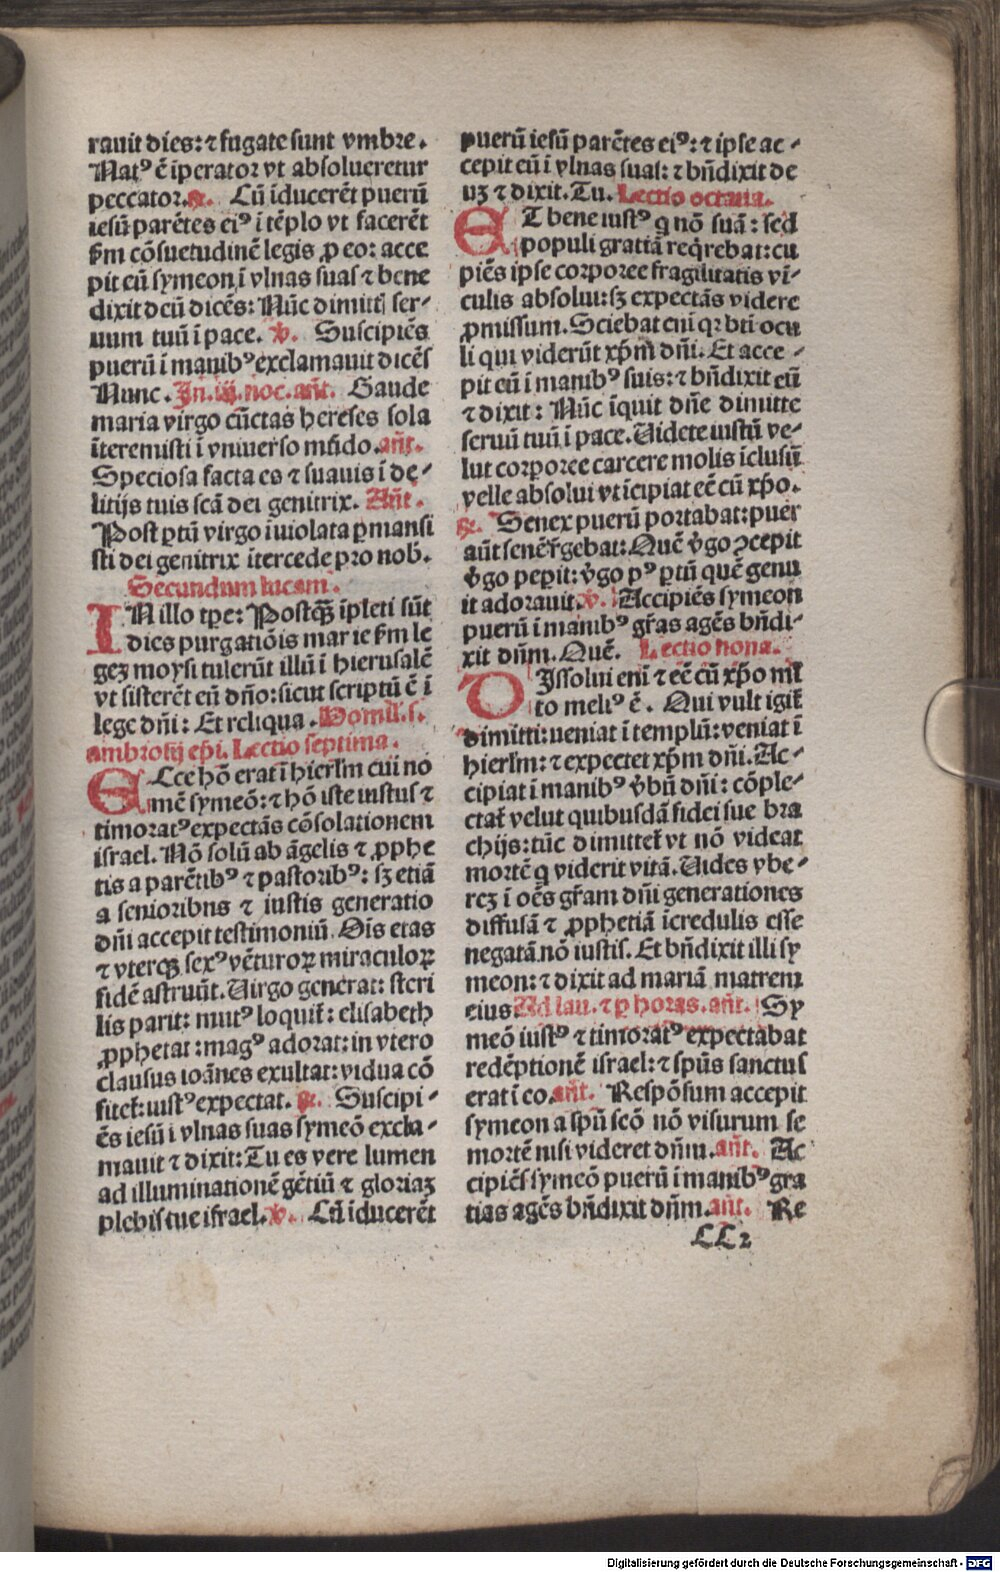 rauit dies: ⁊ fugate sunt vmbre.
Natꝰ ē īperator vt absolueretur
peccator. ℟. Cū īducerēt puerū
iesū parētes eiꝰ ī tēplo vt facerēt
ẜm cōsuetudinē legis ꝓ eo: acce
pit eū symeon ī vlnas suas ⁊ bene
dixit deū dicēs: Nūc dimittis ser-
uum tuū ī pace. ℣. Suscipiēs
puerū ī manibꝰ exclamauit dicēs
Nunc. In .iij. noc. añt. Gaude
maria virgo cūctas hereses sola
īteremisti ī vniuerso mūdo. añt.
Speciosa facta es ⁊ suauis ī de-
litijs tuis scā dei genitrix. Añt.
Post ꝑtū virgo īuiolata ꝑmansi
sti dei genitrix ītercede pro nob.
Secundum lucam.
IN illo tꝑe: Postꝙ̄ īpleti sūt
dies purgatiōis marie ẜm le
gez moysi tulerūt illū ī hierusalē
vt sisterēt eū dño: sicut scriptū ē ī
lege dñi: Et reliqua. Homil. s.
ambrosij epi. Lectio septima.
ECce hō erat ī hierlm cui no
mē symeō: ⁊ hō iste iustus ⁊
timoratꝰ expectās cōsolationem
israel. Nō solū ab āgelis ⁊ ꝓphe
tis a parētibꝰ ⁊ pastoribꝰ: sz etiā
a senioribus ⁊ iustis generatio
dñi accepit testimoniū. Ois etas
⁊ vterqꝫ sexꝰ vēturoꝝ miraculoꝝ
fidē astruūt. Uirgo generat: steri
lis parit: mutꝰ loquit̄: elisabeth
ꝓphetat: magꝰ adorat: in vtero
clausus ioānes exultat: vidua cō
fitet̄: iustꝰ expectat. ℟. Suscipi-
ēs iesū ī vlnas suas symeō excla-
mauit ⁊ dixit: Tu es vere lumen
ad illuminationē gētiū ⁊ gloriaz
plebis tue israel. ℣. Cū īducerēt
puerū iesū parētes eiꝰ: ⁊ ipse ac-
cepit eū ī vlnas suas: ⁊ bñdixit de
uz ⁊ dixit. Tu. Lectio octaua.
ET bene iustꝰ q nō suā: sed
populi gratiā reqrebat: cu
piēs ipse corporee fragilitatis vī-
culis absolui: sz expectās videre
ꝓmissum. Sciebat eni qꝛ bti ocu
li qui viderūt xp̄m dñi. Et acce-
pit eū ī manibꝰ suis: ⁊ bñdixit eū
⁊ dixit: Nūc īquit dñe dimitte
seruū tuū ī pace. Uidete iustū ve-
lut corporee carcere molis īclusū
velle absolui vt īcipiat eē cū xp̄o.
℟. Senex puerū portabat: puer
aūt senē r̄gebat: Quē v̄go ꝯcepit
v̄go peꝑit: v̄go pꝰ ꝑtū quē genu
it adorauit. ℣. Accipiēs symeon
puerū ī manibꝰ gr̄as agēs bñdi-
xit dñm. Quē. Lectio nona.
DIssolui eni ⁊ eē cū xp̄o ml̄
to meliꝰ ē. Qui vult igit̄
dimitti: ueniat ī templū: veniat ī
hierlm: ⁊ expectet xp̄m dñi. Ac-
cipiat ī manibꝰ v̄bū dñi: cōple-
ctat̄ velut quibusdā fidei sue bra
chijs: tūc dimittet̄ vt nō videat
mortē q viderit vitā. Uides vbe-
rez ī oēs gr̄am dñi generationes
diffusā ⁊ ꝓphetiā īcredulis esse
negatā nō iustis. Et bñdixit illi sy
meon: ⁊ dixit ad mariā matrem
eius Ad lau. ⁊ ꝑ horas. añt. Sy
meō iustꝰ ⁊ timoratꝰ expectabat
redēptionē israel: ⁊ spūs sanctus
erat ī eo. añt. Respōsum accepit
symeon a spū scō nō visurum se
mortē nisi videret dñm. añt. Ac
cipiēs symeō puerū ī manibꝰ gra
tias agēs bñdixit dñm. añt. Re
LL2
Digitalisierung gefördert durch die Deutsche Forschungsgemeinschaft - DFG